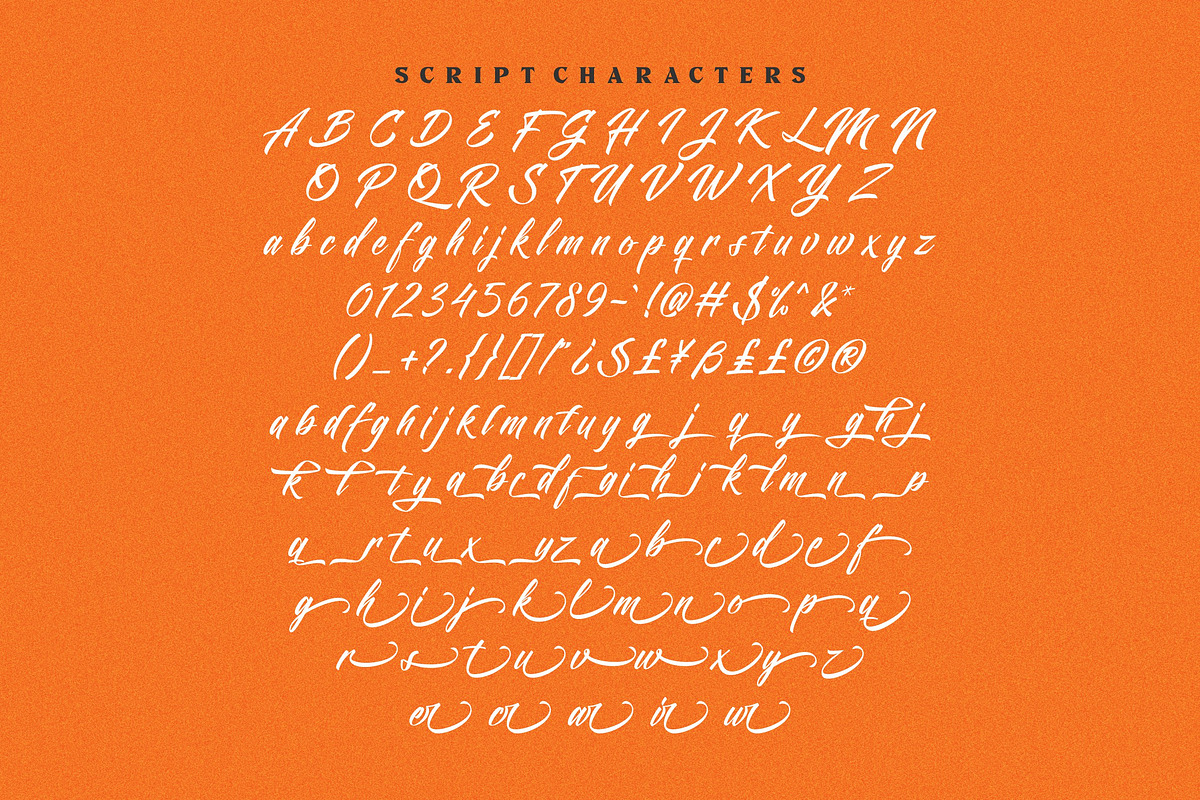 SCRIPT CHARACTERS
A B C D E F G H I J K L M N
O P Q R S T U V W X Y Z
a b c d e f g h i j k l m n o p q r s t u v w x y z
0123456789-`!@#$%^&*
()_+?.{}[]/"¿§£¥β₤£©®
abdfghijklmntuyg j q y ghj
k l t y a b c d f g i h j k l m n p
q r t u x y z a b c d e f
g h i j k l m n o p q
r s t u v w x y z
er cr ar ir ur